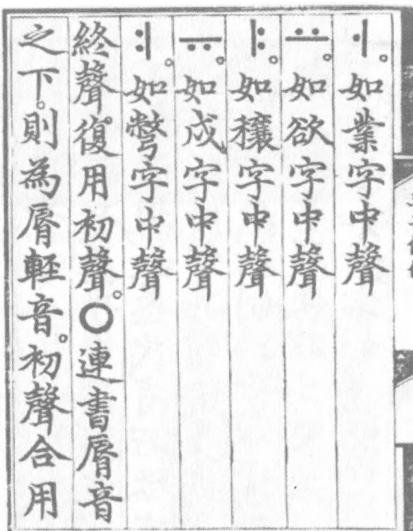 ㅓ。如業字中聲
ㅛ。如欲字中聲
ㅑ。如穰字中聲
ㅠ。如戌字中聲
ㅕ。如彆字中聲
終聲。復用初聲。○連書脣音
之下。則為脣輕音。初聲合用